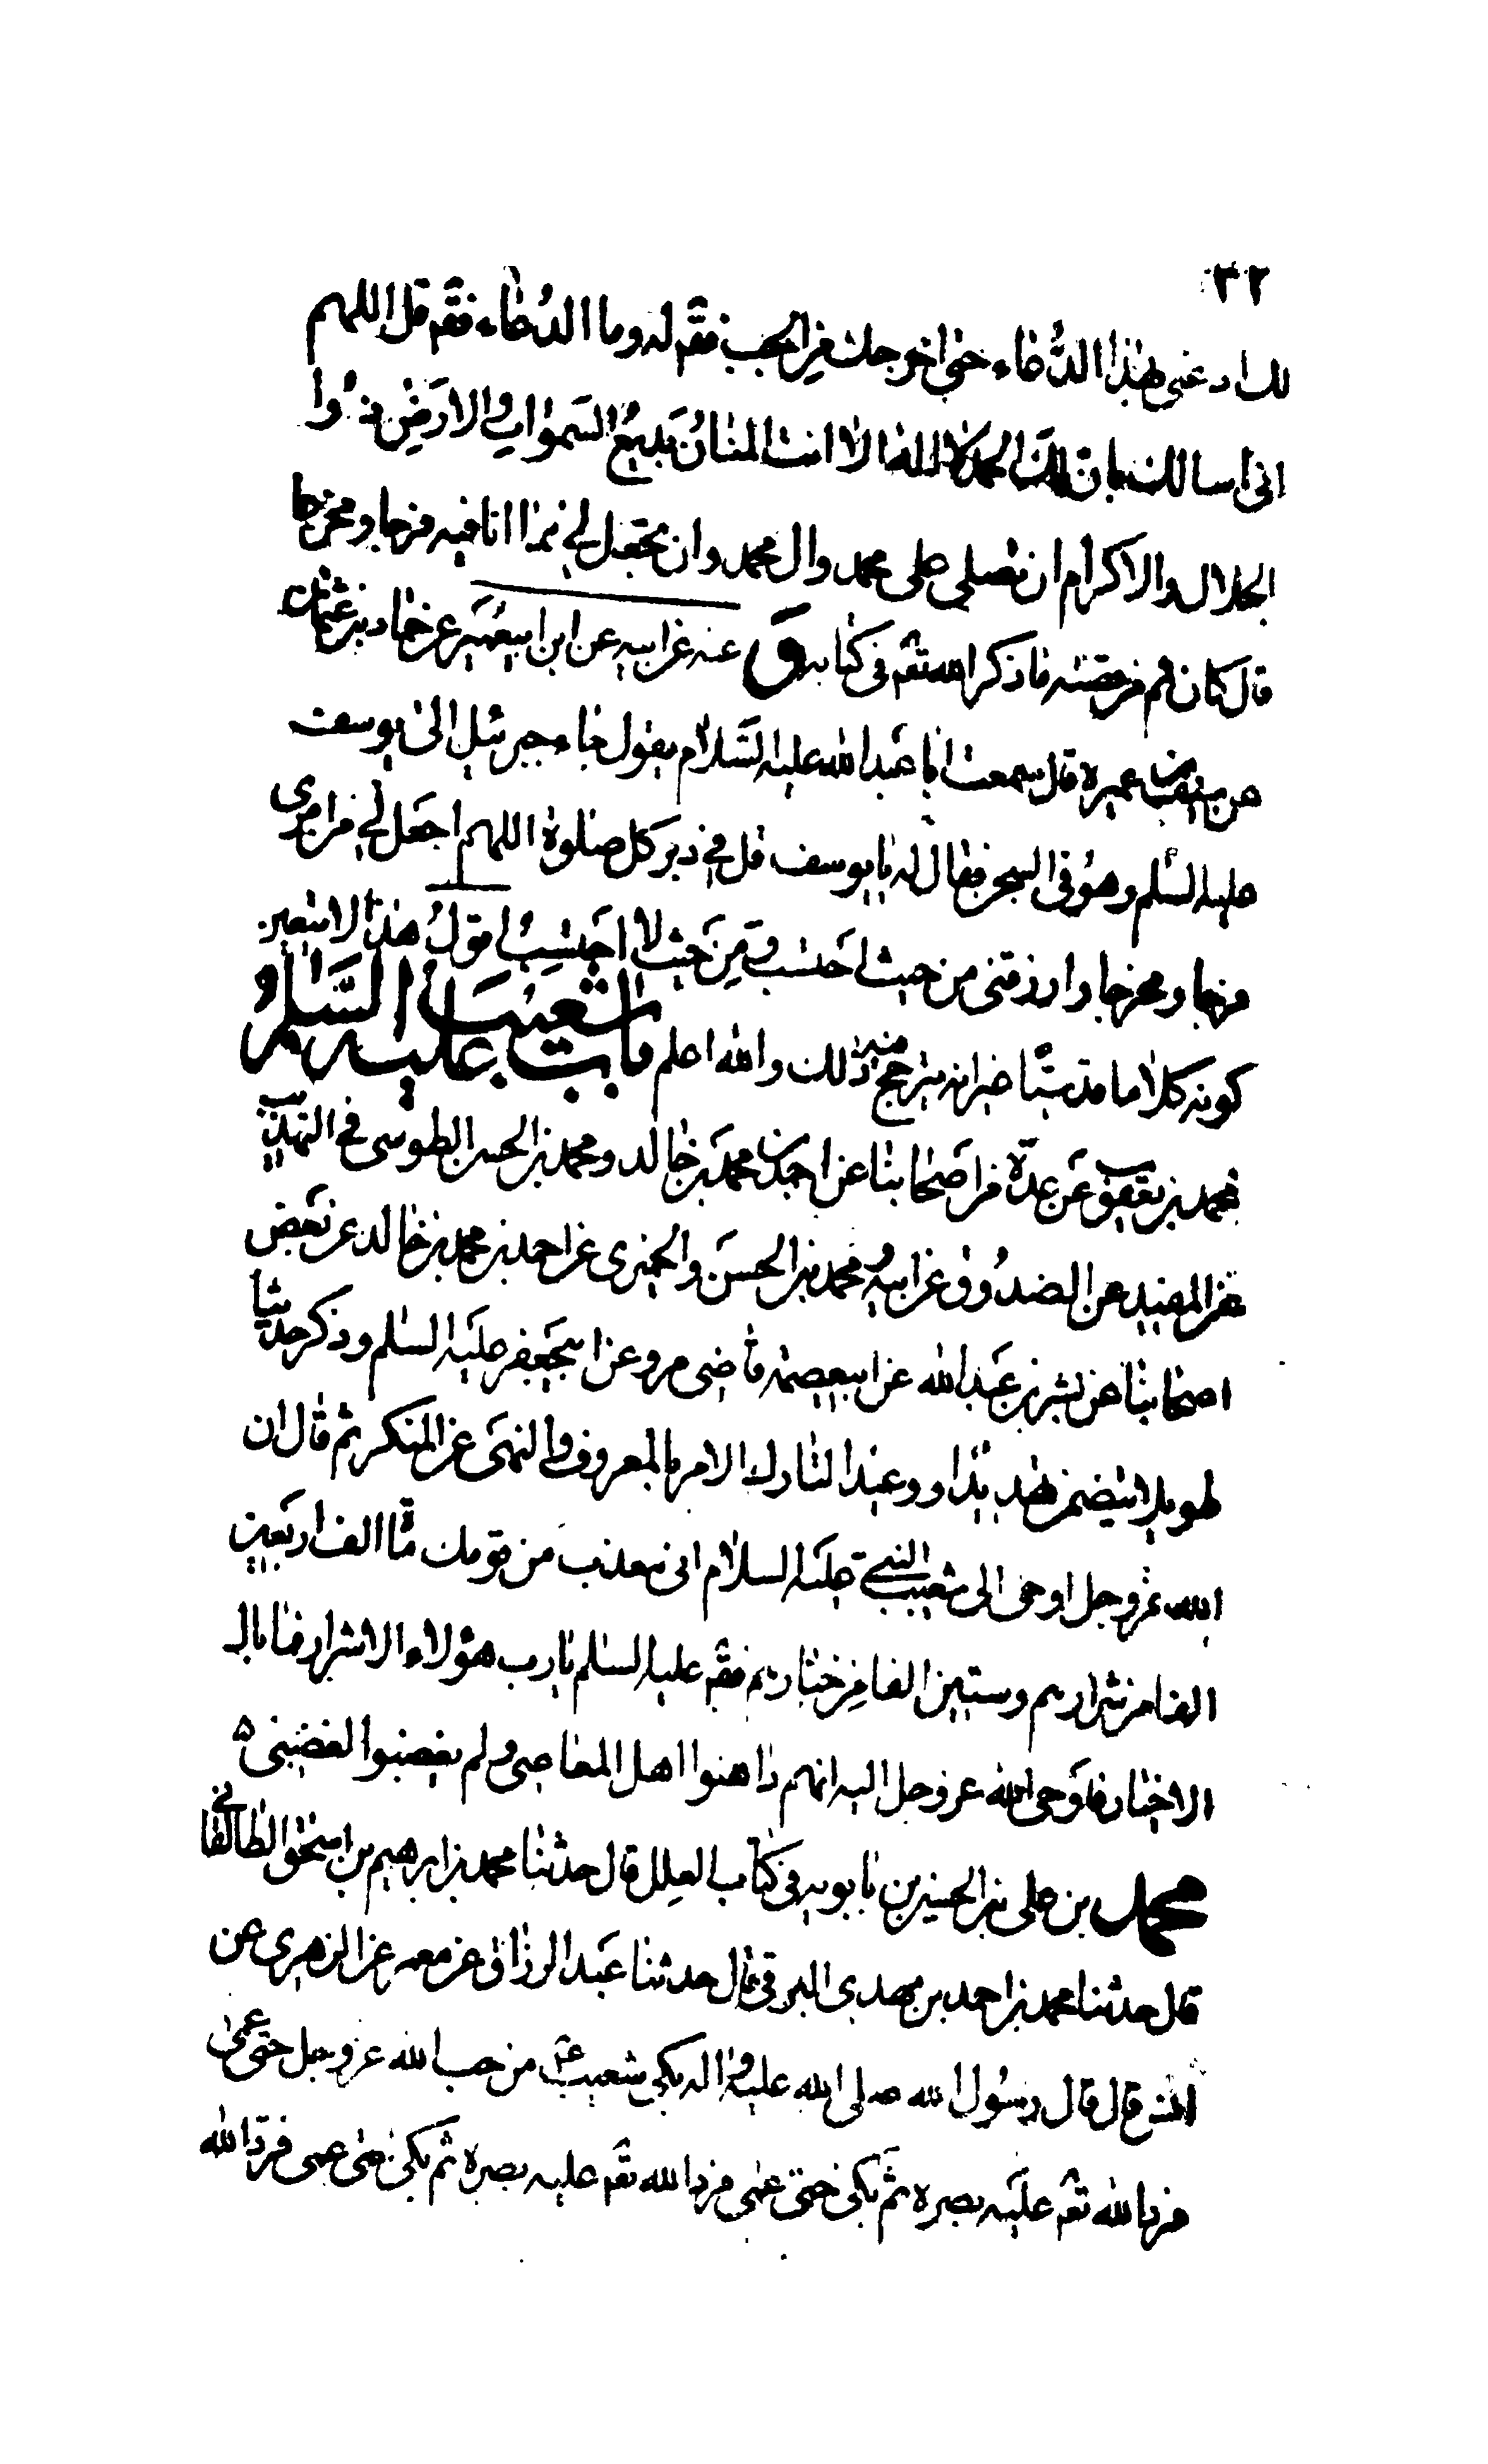 ٣٢
لك ادعنى بهذا الدُّعاء حتى اخرجك من الجب فقٓه له وما الدُعاء فقٓه قل اللهم
انى اسالك بان لك الحمد لا اله الا انت المنانُ بَديعُ السَموات والارَضِ ذُوا
الجلال والاكرام ان تصلى على محمد وال محمد وان تجعل لى مما انا فيه فرجا ومخرجا
قال كان ثم من قصته ما ذكر الله تعٓه فى كتابه وَ عنه عن ابيه عن ابن ابيعُمَير عن حماد بن عثمان
عن سيف بن عميره قال سمعت ابا عَبدالله عليه السَّلام يقول جاء جبرئيل الى يوسف
عليه السَّلم وهُو فى السجن فقال له يا يوسف قل فى دبر كل صلوة اللهم اجعَل لى من امرى
فرجا ومخرجا وارزقنى من حيث احَتسب ومِن حَيث لا احتسِبُ اقولُ هذا لا يتعين
كونه كلاما مقدسًّا غير انه يترجح منه ذلك والله اعلم بابُ شعيب عَليه السَّلامُ
محمد بن يعقوب عَن عِدّة من اصَحابنا عن احمد بن محمد بن خالد ومحمد بن الحسن الطوسى فى التهذيب
عن المفيد عن الصدُوق عن ابيه ومحمد بن الحسَن والحميرى عن احمد بن محمد بن خالد عن بَعض
اصحابنا عن بشر بن عَبدالله عن ابيعصمه قاضى مرو عن ابيجَعفر عليَه السلم وذكر حديثا
طويلا يتضمن تهديدا ووعيدا لتارك الامر بالمعروف والنهَى عن المنكر ثم قال ان
الله عزوجل اوحى الى شعيب النبى عليَه السلام انى معذب من قومك مٓا الف اربَعين
الفا من شرارهم وستين الفا من خيارهم فقٓه عليه السلم يا رب هؤلاء الاشرار فما بال
الاخيار فاوَحى الله عزوجل اليه انهم داهنوا اهل المعاصى ولم يغضبوا لغضبى ٥
محمد بن على بن الحسين بن بابويه فى كتاب العلل قال حدثنا محمد بن ابرهيم بن اسحٰق الطالقانى
قال حدثنا محمد بن احمد بن مهدى البرقى قال حدثنا عَبد الرزاق عن معمر عن الزهرى عن
انس قال قال رسُول الله صلى الله عليه واله بكى شعيب عٓ من حب الله عزوجل حتى عمى
فرد الله تعٓه عليَه بصره ثم بكى حتى عمى فرد الله تعٓه عليه بصره ثم بكى حتى عمى فرد الله